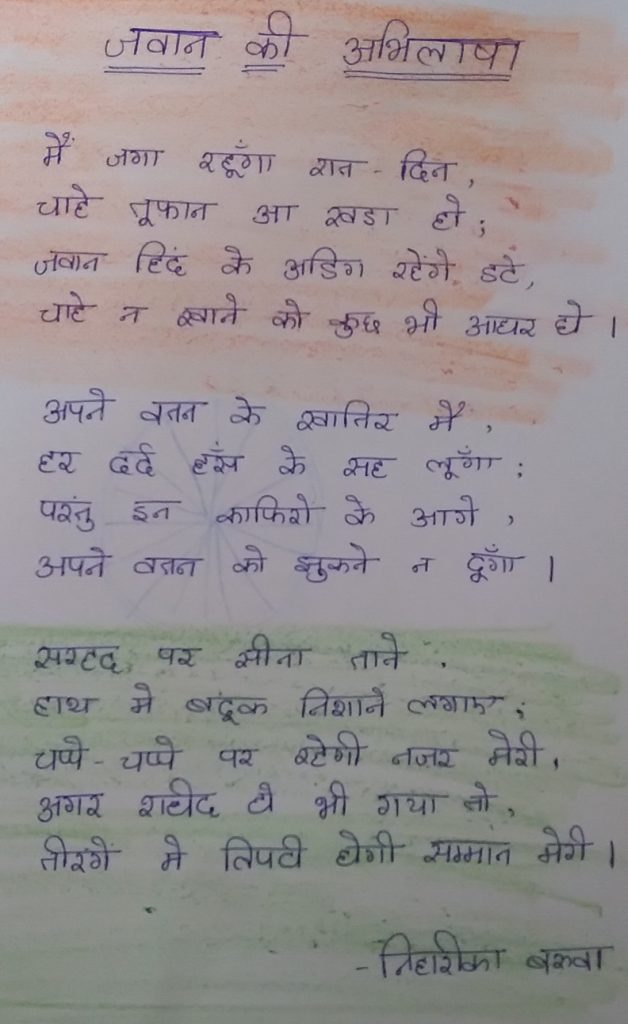 जवान की अभिलाषा
मैं जगा रहूँगा रात - दिन,
चाहे तूफान आ खडा हो;
जवान हिंद के अडिग रहेंगे डटे,
चाहे न खाने को कुछ भी आहार हो ।
अपने वतन के खातिर मैं,
हर दर्द हँस के सह लूँगा;
परंतु इन काफिरो के आगे,
अपने वतन को झुकने न दूँगा ।
सरहद पर सीना ताने,
हाथ मे बदूक निशाने लगाए;
चप्पे - चप्पे पर रहेगी नजर मेरी,
अगर शहीद हो भी गया तो,
तीरंगें मे लिपटी होगी सम्मान मेरी ।
- निहारीका बरुवा